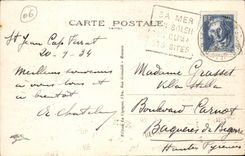 06
CARTE POSTALE
SA MER
SON SOLEIL
SON CLIMAT
SES SITES
St Jean Cap Ferrat
20-9-34
Meilleurs souvenirs
à vous tous et
à bientôt
Madame Grasset
Villa Stella
Boulevard Carnot
Bagnères de Bigorre
Hautes Pyrénées